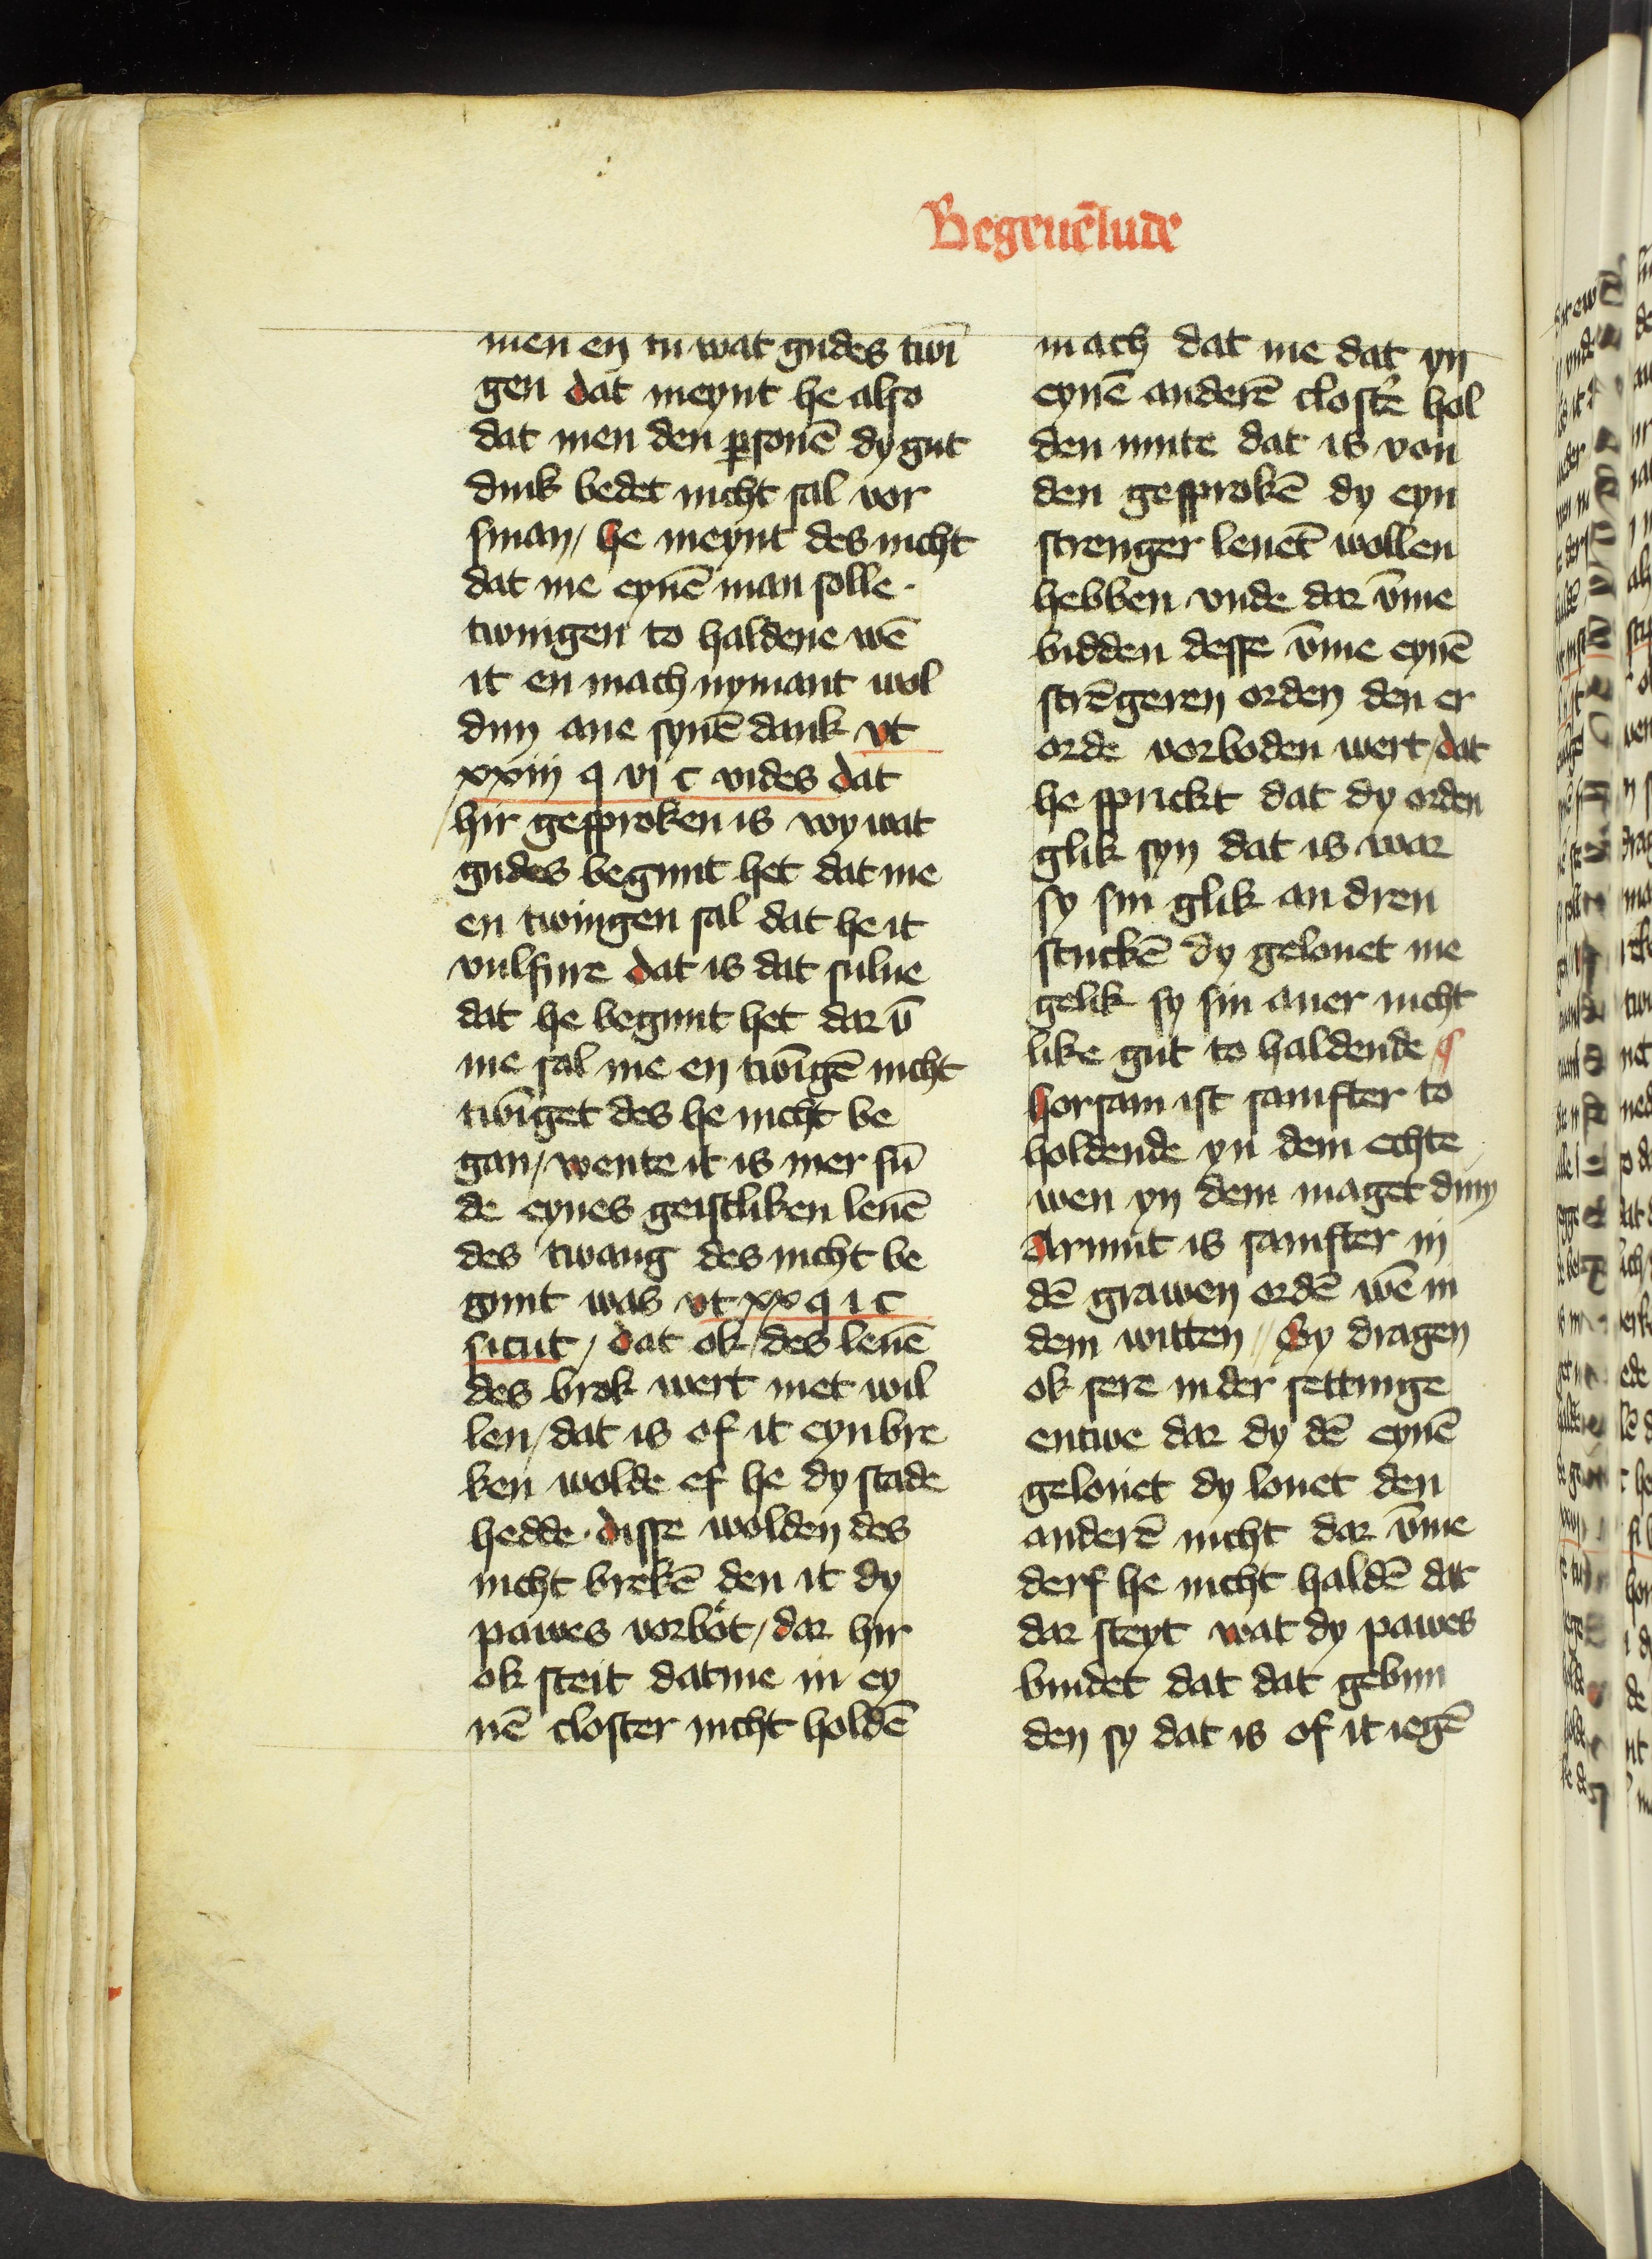 Begeuēlude
men en tu wat gudes twi
gen dat meynt he also
dat men den ꝑsonē dy gut
dink bedet nicht sal vor
sman / he meynt des nicht
dat me eynē man solle ·
twingen to haldene wē
it en mach nymant wol
dun ane synē dank vt
xxiij q vj c vides dat
hir gesproken is wy wat
gudes begunt het dat me
en twingen sal dat he it
vulfure dat is dat sulue
dat he begunt het dar v̄
me sal me en twīgē nicht
twīget des he nicht be
gan / wente it is mer sū
de eynes geistliken leuē
des twang des nicht be
gunt was vt xx q i c
sicut / dat ok des leuē
des brok wert met wil
len / dat is of it eyn bre
ken wolde ef he dy stade
hedde · disse wolden des
nicht brekē den it dy
pawes vorbot / dar hir
ok steit dat me in ey
nē closter nicht holdē
mach dat me dat yn
eynē anderē closter hal
den mute dat is von
den gesprokē dy eyn
strenger leuēt wollen
hebben vnde dar v̄me
bidden desse v̄me eynē
strēgeren orden den er
orde vorboden wert / dat
he sprickt dat dy orden
glik syn dat is war
sy sin glik an dren
stuckē dy gelouet me
gelik sy sin auer nicht
like gut to haldende ¶
horsam ist samfter to
holdende yn dem echte
wen yn dem maget dum
Armut is samfter in
dē grawen ordē wē in
dem witten // Sy dragen
ok sere in der settinge
entwe dar dy dē eynē
gelouet dy louet den
anderē nicht dar v̄me
derf he nicht haldē dat
dar steyt wat dy pawes
bindet dat dat gebun
den sy dat is of it iegē